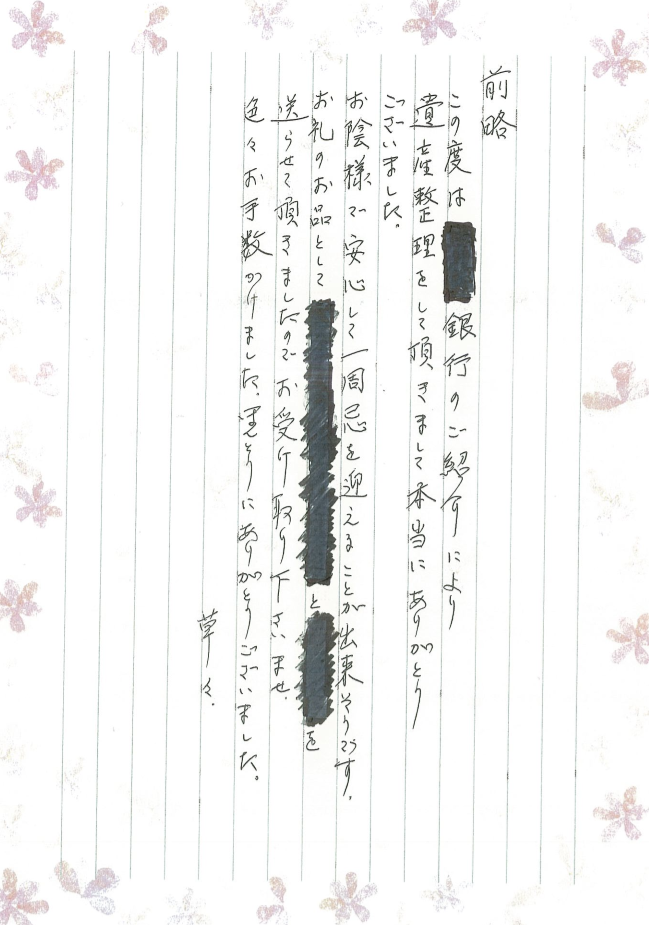 前略
この度は 銀行のご紹介により
遺産整理をして頂きまして本当にありがとう
ございました。
お陰様で安心して一周忌を迎えることが出来そうです。
お礼のお品として と を
送らせて頂きましたのでお受け取り下さいませ。
色々お手数かけました。誠にありがとうございました。
草々。